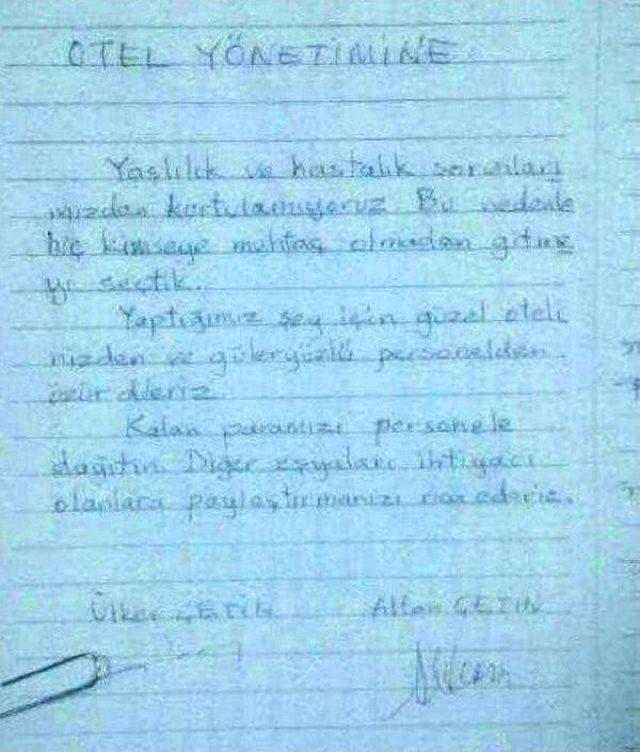 OTEL YÖNETİMİNE
Yaşlılık ve hastalık sorunları
mızdan kurtulamıyoruz. Bu nedenle
hiç kimseye muhtaç olmadan gitme
yi seçtik.
Yaptığımız şey için güzel oteli
nizden ve güleryüzlü personelden
özür dileriz.
Kalan paramızı personele
dağıtın. Diğer eşyaları ihtiyacı
olanlara paylaştırmanızı rica ederiz.
Ülker ÇETİN Altan ÇETİN